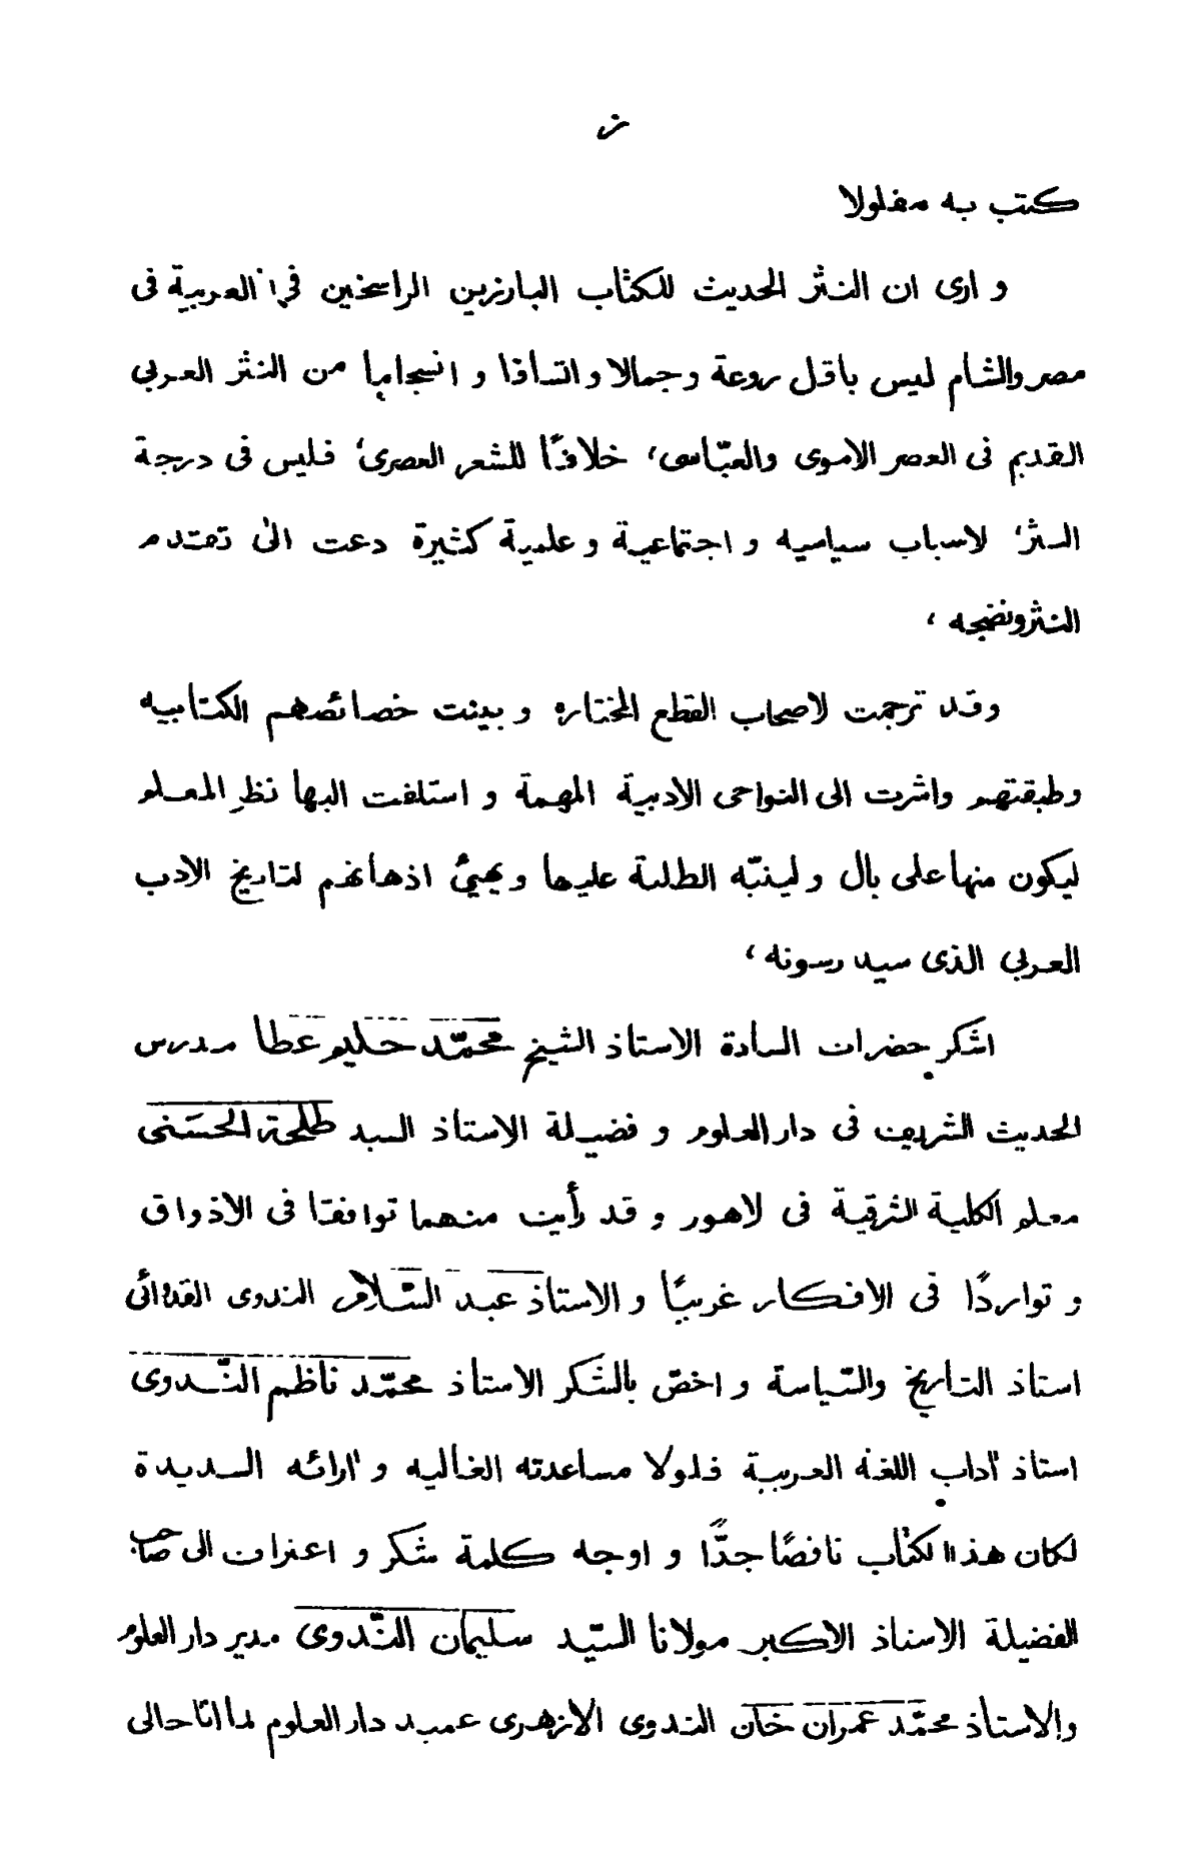 ز
كتب به مغلولا
و ارى ان النثر الحديث للكتّاب البارزين الراسخين في العربية فى
مصر والشام ليس باقل روعة و جمالا و اتساقا و انسجاما من النثر العربي
القديم فى العصر الاموى والعبّاسى، خلافًا للشعر العصرى، فليس فى درجة
النثر، لاسباب سياسيه و اجتماعية و علمية كثيرة دعت الى تقدم
النثر ونضجه ،
وقد ترجمت لاصحاب القطع المختاره و بينت خصائصهم الكتابيه
وطبقتهم واشرت الى النواحى الادبية المهمة و استلفت اليها نظر المعلم
ليكون منها على بال و لينبّه الطلبة عليها و يهيئ اذهانهم لتاريخ الادب
العربي الذى سيدرسونه ،
اشكر حضرات السادة الاستاذ الشيخ محمّد حليم عطا مدرس
الحديث الشريف فى دار العلوم و فضيلة الاستاذ السيد طلحة الحسَنى
معلم الكلية الشرقية فى لاهور و قد رأيت منهما توافقا فى الاذواق
و تواردًا فى الافكار غريبًا و الاستاذ عبد السّلام الندوى القدوائى
استاذ التاريخ والسّياسة و اخصّ بالشكر الاستاذ محمّد ناظم النّدوى
استاذ آداب اللغة العربية فلولا مساعدته الغاليه و آرائه السديدة
لكان هذا الكتاب ناقصًا جدًّا و اوجه كلمة شكر و اعتراف الى صاحب
الفضيلة الاستاذ الاكبر مولانا السيّد سليمان النّدوى مدير دار العلوم
والاستاذ محمّد عمران خان الندوى الازهرى عميد دار العلوم لما اتاحا لى